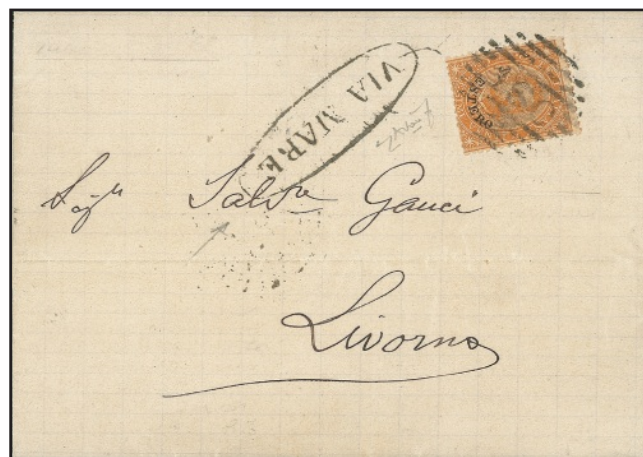 VIA MARE
ESTERO
Sig.r Salv.re Gauci
Livorno